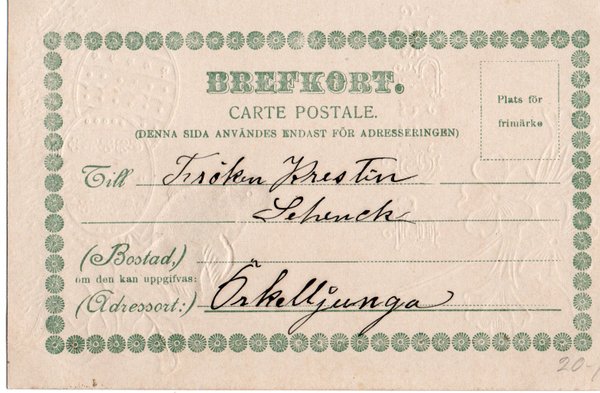 BREFKORT.
CARTE POSTALE.
(DENNA SIDA ANVÄNDES ENDAST FÖR ADRESSERINGEN)
Plats för
frimärke
Till Fröken Kresten
Schenck
(Bostad,)
om den kan uppgifvas:
(Adressort:) Örkelljunga
20-